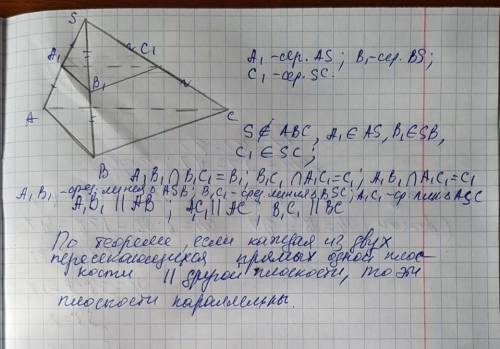 S
A₁
C₁
B₁
A
C
B
A₁ -сер. AS; B₁-сер. BS;
C₁ -сер. SC.
S∉ABC, A₁∈AS, B₁∈SB,
C₁∈SC;
A₁B₁∩B₁C₁=B₁; B₁C₁∩A₁C₁=C₁; A₁B₁∩A₁C₁=C₁
A₁B₁ -сред. линия в ASB; B₁C₁ -сред. линия в BSC; A₁C₁ -ср. линия ASC
A₁B₁ || AB; A₁C₁ || AC; B₁C₁ || BC
По теореме, если каждая из двух
пересекающихся прямых одной плос-
кости || другой плоскости, то эти
плоскости параллельны.